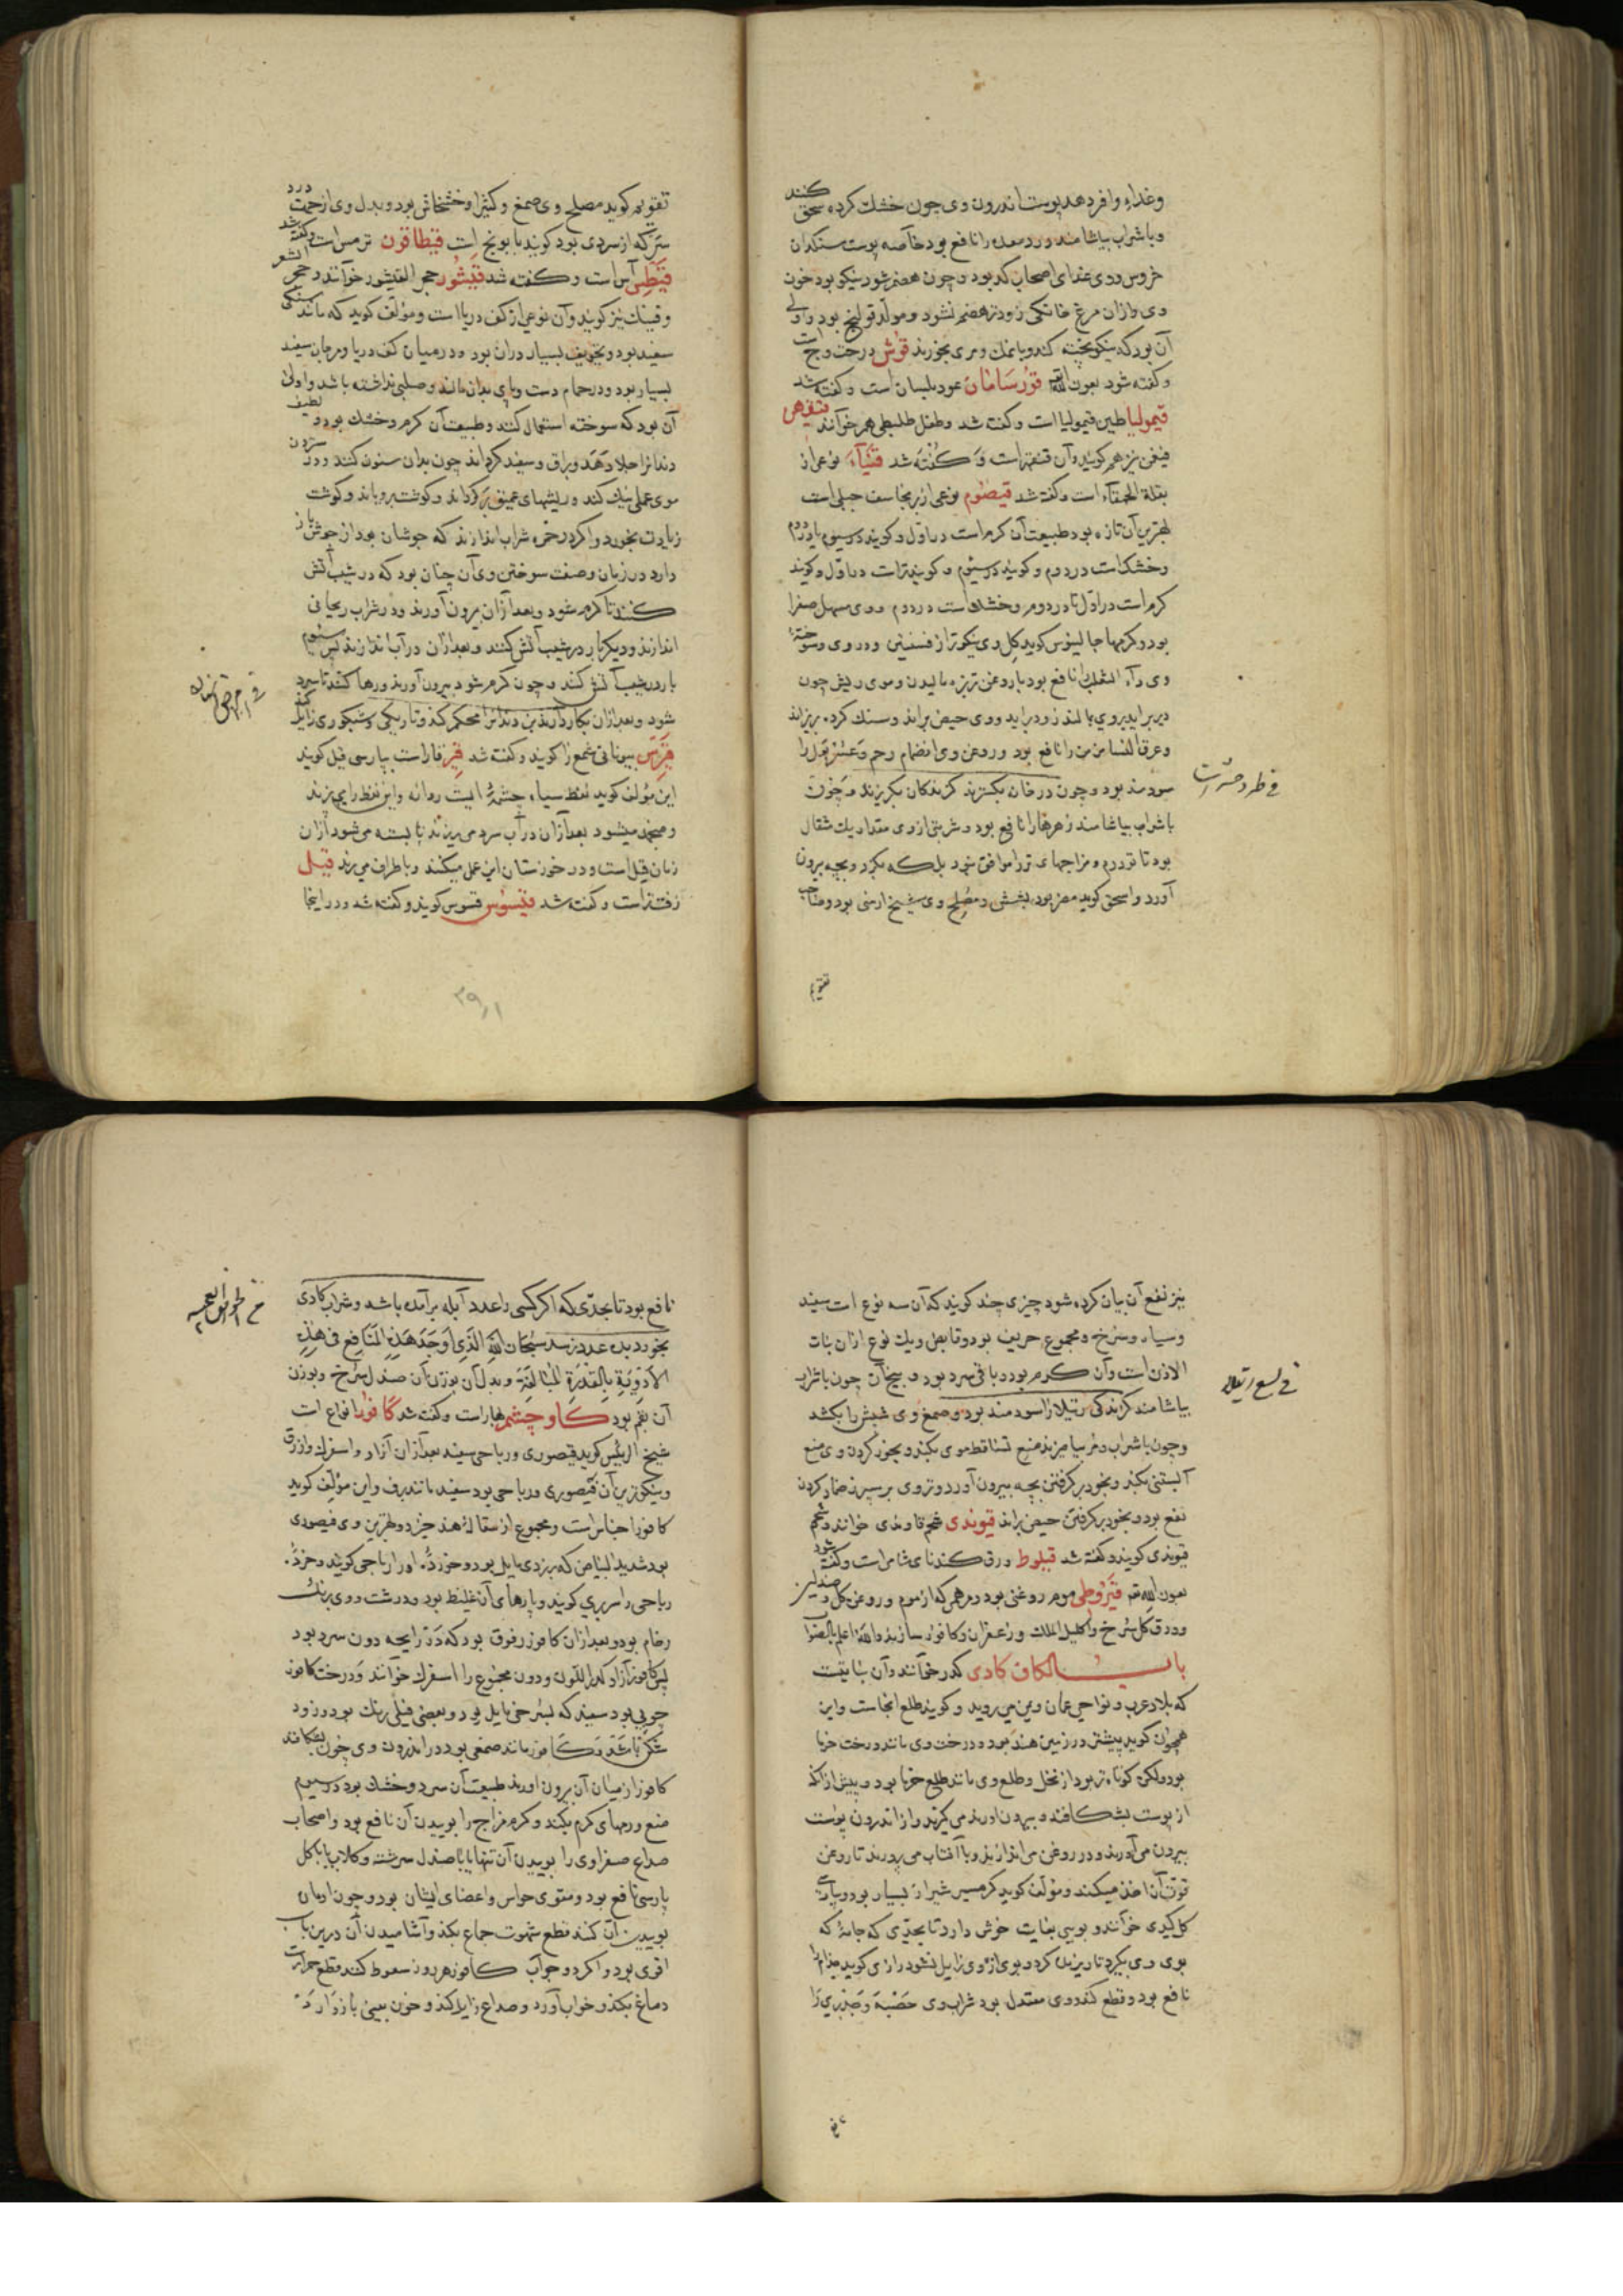 وغذاء وافر دهد پوست اندرون وی چون خشك کرده سحق کنند
وبا شراب بیاشامند درد معده را نافع بود خاصه پوست سنکدان
خروس ووی غذای اصحاب کد بود وچون هضم شود نیکو بود خون
وی واز آن مرغ خانکی زودتر هضم نشود ومولد قولنج بود واولی
آن بود که نیکو بخته کند وبا نمك ومری بخورند قوش درخت وج است
وکفته شود بعون الله قورسامان عود بلسان است وکفته شد
قیمولیا طین قیمولیا است وکفت شد وطفل طلیطلی هم خوانند
قیفی نیز هم کویند وآن قنقهر است وکفته شد قثیاء نوعی از
بقلة الحمقاء است وکفته شد قیصوم نوعی از برنجاسف جبلی است
بهترین آن تازه بود طبیعت آن کرم است در اول وکویند در سیوم یا دوم
وخشك است در دوم وکویند در سیوم وکویند تر است در اول وکویند
کرم است در اول تا در دوم وخشك است در دوم ووی مسهل صفرا
بود وکرمها جالینوس کوید کل وی نیکوتر از فسنتین ودر وی وسوخته
وی داء الثعلب را نافع بود با روغن تربزه مالیدن وموی ریش چون
دیر براید بروی بمالند زود براید ووی حیض براند وسنك کرده بریزاند
وعرق النسا مزمن را نافع بود وروغن وی انضمام رحم وعسر بول را
سودمند بود وچون در خانه بکسترند کزندکان بکریزند وچون
با شراب بیاشامند زهرها را نافع بود وشربتی از وی مقدار یك مثقال
بود تا دو درم ومزاجهای تر را موافق نبود بلکه بکرد وبچه بیرون
آورد واسحق کوید مضر بود بشش ومصلح وی شیخ ارمنی بود وصاحب
فی طرد حشرات
تقویم
تقویم کوید مصلح وی صمغ وکثیرا وخشخاش بود وبدل وی از جهت درد
سر که از سردی بود کویند بابونج است قیطاقون ترمس است وکفته شد
قیطس آس است وکفت شد قیشور حجر القیشور خوانند وحجر الشعر
وقینك نیز کویند وآن نوعی از کف دریا است ومولف کوید که مانند سنکی
سفید بود وتجویف بسیار در آن بود ودر میان کف دریا ومرجان سفید
بسیار بود ودر حمام دست وپای بدان مالند وصلبی نداشته باشد واولی
آن بود که سوخته استعمال کنند وطبیعت آن کرم وخشك بود ولطیف
دندانرا جلا دهد وبراق وسفید کرداند چون بدان سنون کنند ودر ستردن
موی عملی نیك کند وریشهای عمیق پر کرداند وکوشت برویاند وکوشت
زیادت بخورد واکر در خمره شراب اندازند که جوشان بود از جوش باز
دارد در زمان وصفت سوختن وی آن چنان بود که در شیب آتش
کنند تا کرم شود وبعد از آن بیرون آورند ودر شراب ریحانی
اندازند ودیکر بار در شیب آتش کنند وبعد از آن در آب اندازند پس سیوم
بار در شیب آتش کنند وچون کرم شود بیرون آورند ورها کنند تا سرد
شود وبعد از آن بکار دارند بن دندانرا محکم کند وتاریکی وشبکوری زایل کند
قیرس بیونانی شمع را کویند وکفته شد قیر قار است بپارسی قیل کویند
این مولف کوید نفط سیاه چشمه ایست روانه واین نفط را می پزند
ومنجمد میشود بعد از آن در آب سرد می ریزند تا بسته می شود از آن
زمان قیل است ودر خوزستان این عمل میکنند وباطراف می برند قیل
زفت تر است وکفته شد قیسوس قسوس کویند وکفته شد ودر اینجا
۲۹۱
نیز نفع آن بیان کرده شود چیزی چند کویند که آن سه نوع است سفید
وسیاه وسرخ ومجموع حریف بود وقابض ویك نوع از آن نبات
الاذن است وآن کرم بود وباقی سرد بود وبیخ آن چون با شراب
بیاشامند کزندکی رتیلا را سودمند بود وصمغ وی شپش را بکشد
وچون با شراب ومر بیامیزند منع تساقط موی بکند وبخور کردن وی منع
آبستنی بکند وبخود برکرفتن بچه بیرون آورد وتر وی بر سپرز ضماد کردن
نفع بود وبخود برکرفتن حیض براند قیوندی شحم قاوندی خوانند وشحم
قیوندی کویند وکفته شد قیلوط ورق کندنای شامی است وکفته شود
بعون الله تع قیروطی موم روغنی بود ومرهمی که از موم وروغن کل وصندلین
وورق کل سرخ واکلیل الملك وزعفران وکافور سازند والله اعلم بالصواب
باب الکاف کادی کدر خوانند وآن نباتیست
که ببلاد عرب ونواحی عمان ویمن می روید وکویند طلع انجاست واین
همچون کوید بیشتر در زمین هند بود ودرخت وی مانند درخت خرما
بود ولکن کوتاه تر بود از نخل وطلع وی مانند طلع خرما بود وپیش از آنکه
از پوست بشکافند وبیرون اورند می کیرند واز اندرون پوست
بیرون می آورند ودر روغن می اندازند وبا آفتاب می پرورند تا روغن
قوت آن اخذ میکند ومولف کوید کرمسیر شیراز بسیار بود وبپارسی
کل کیدی خوانند وبویی بغایت خوش دارد تا بحدی که جامه که
بوی وی بکیرد تا ریزیده کردد بوی از وی زایل نشود رازی کوید جذام را
نافع بود وقطع کند ووی معتدل بود شراب وی حصبه وجدری را
فی لسع رتیلا
نافع بود تا بحدی که اکر کسی را عدد آبله برآمده باشد وشراب کادی
بخورد بده عدد نرسد سبحان الله الذی اوجد هذه المنافع فی هذه
الادویة بالقدرة البالغة وبدل آن بوزن آن صندل سرخ وبوزن
آن بقم بود کاو چشم بهار است وکفته شد کافور انواع است
شیخ الرئیس کوید قیصوری ورباحی سفید بعد از آن آزاد واسفرك وازرق
ونیکوترین آن قیصوری ورباحی بود سفید مانند برف واین مولف کوید
کافور اجناس است ومجموع از سقاله هند خیزد وبهترین وی قیصوری
بود شدید البیاض که بزردی مایل بود وخورد. اورا رباحی کویند وخرد.
رباحی را سربری کویند وپارهای آن غلیظ بود ودرشت ووی برنك
رخام بود وبعد از آن کافور زفوق بود که در رایحه دون سربری بود
پس کافور آزاد کدر اللون ودون مجموع را اسفرك خوانند ودرخت کافور
چوبی بود سفید که بسرخی مایل بود وبعضی فیلی رنك بود وزود
شکن باشد وکافور مانند صمغی بود در اندرون وی چون بشکافند
کافور از میان آن بیرون اورند طبیعت آن سرد وخشك بود در سیوم
منع ورمهای کرم بکند وکرم مزاج را بوییدن آن نافع بود واصحاب
صداع صفراوی را بوییدن آن تنها یا با صندل سرشته وکلاب یا با کل
پارسی نافع بود ومقوی حواس واعضای ایشان بود وچون ادمان
بوییدن آن کنند قطع شهوت جماع بکند وآشامیدن آن درین باب
اقوی بود واکر دو جو آب کافور هر روز سعوط کنند قطع حرارت
دماغ بکند وخواب آورد وصداع زایل کند وخون بینی باز دارد